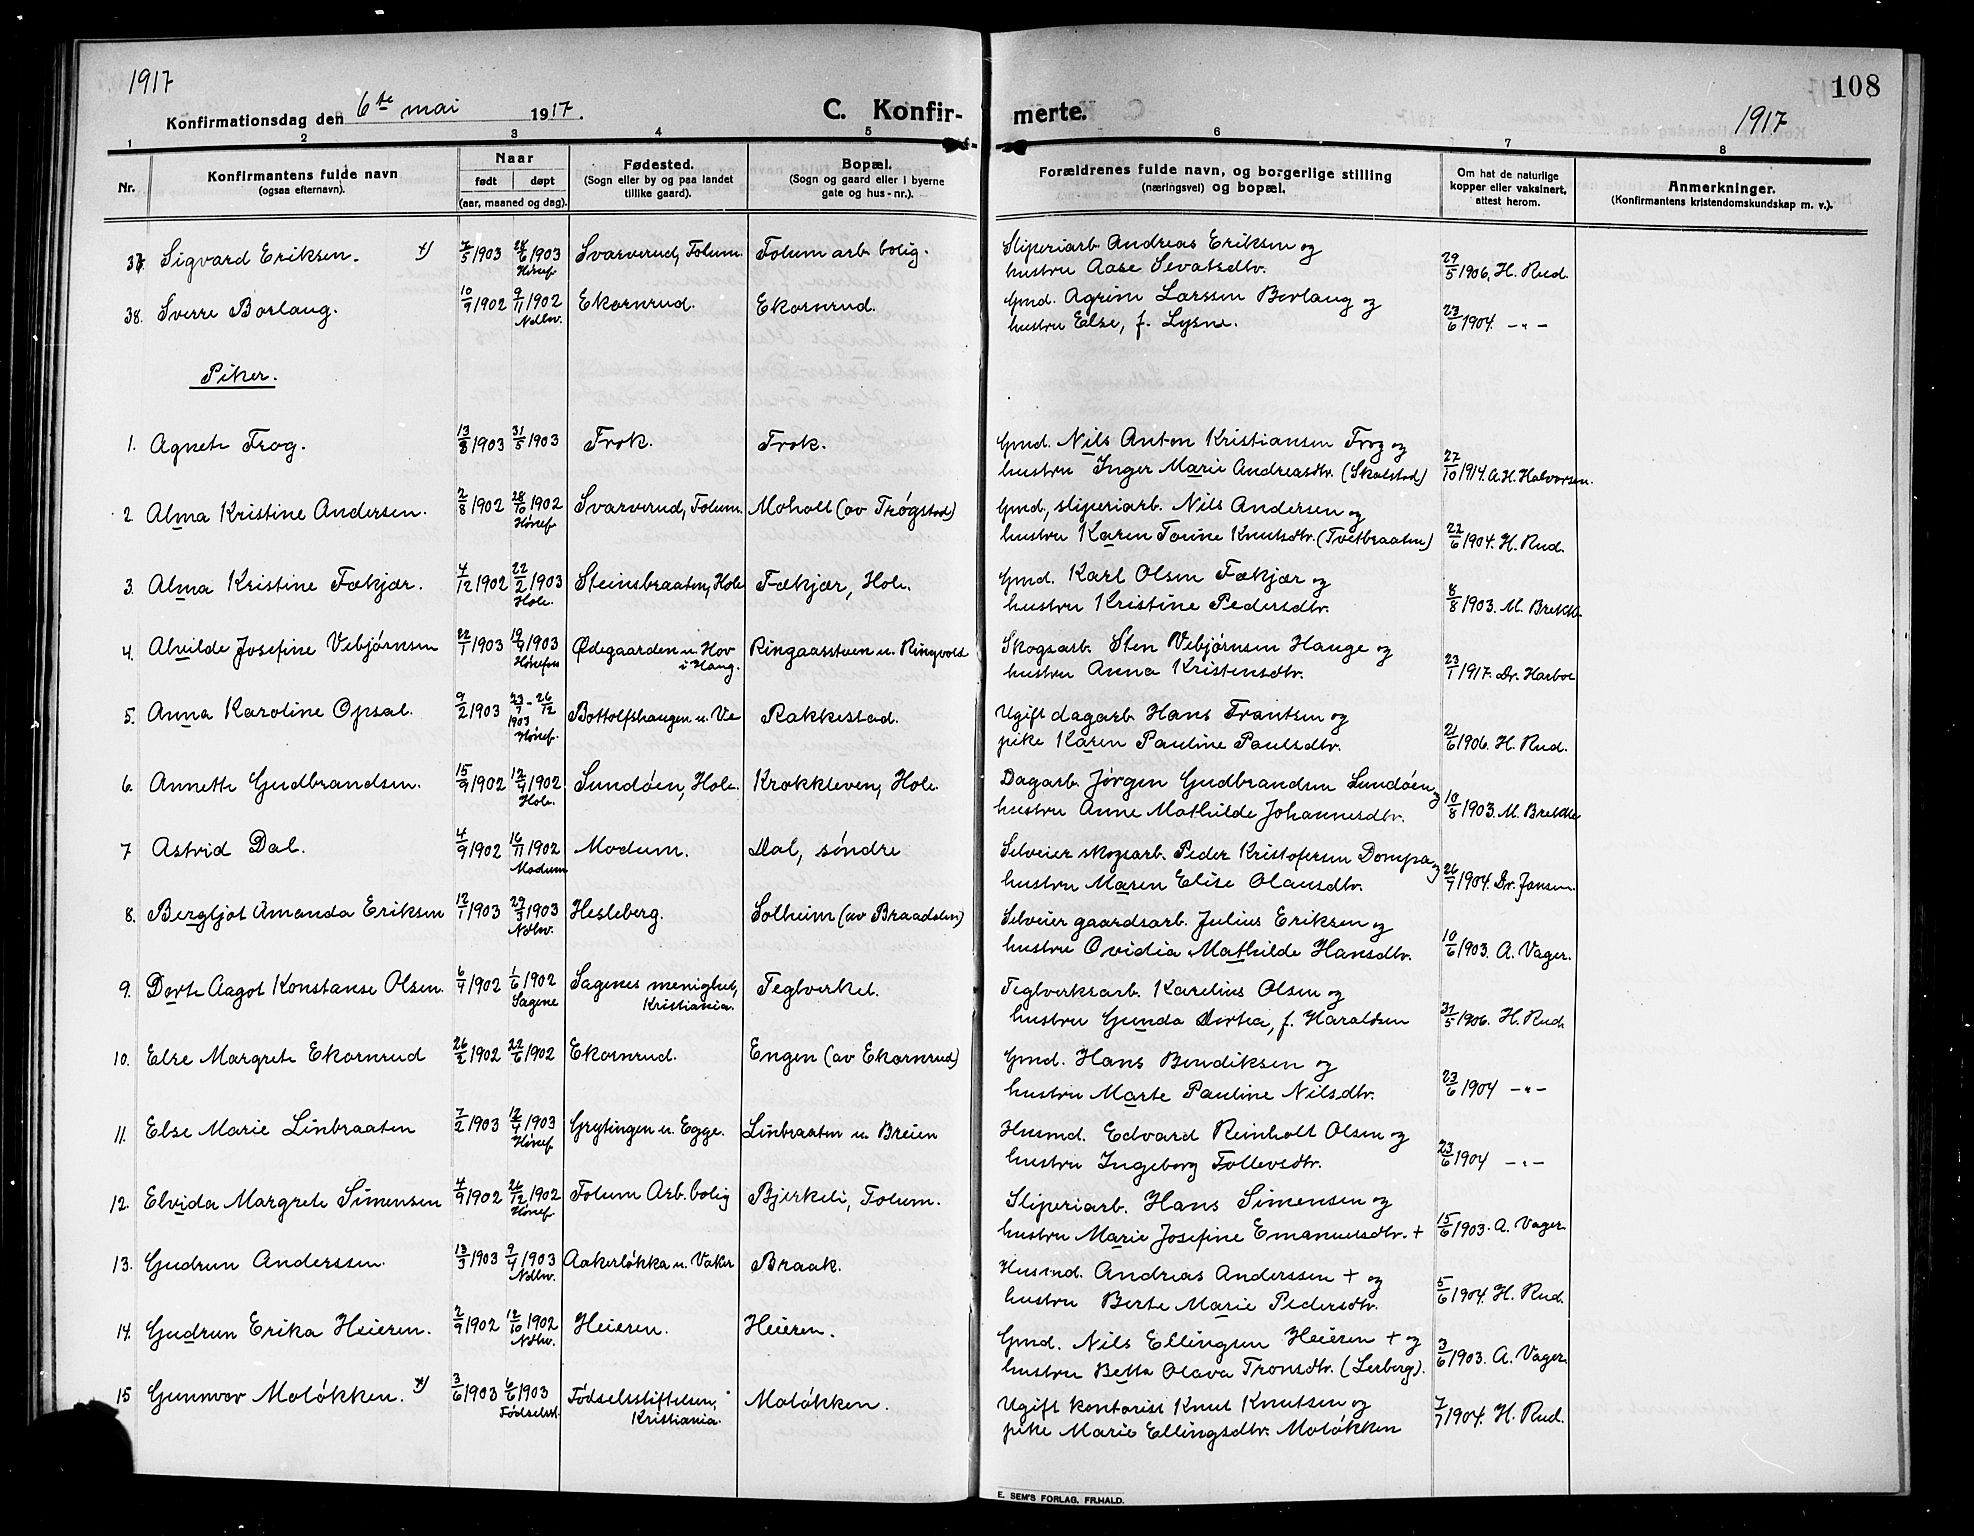 108
1917
1917
Konfirmationsdag den 6te mai 1917.
C. Konfirmerte.
1 2 3 4 5 6 7 8
Nr.
Konfirmantens fulde navn
(ogsaa efternavn).
Naar
født døpt
(aar, maaned og dag).
Fødested.
(Sogn eller by og paa landet
tillike gaard).
Bopæl.
(Sogn og gaard eller i byerne
gate og hus-nr.).
Forældrenes fulde navn, og borgerlige stilling
(næringsvei) og bopæl.
Om hat de naturlige
kopper eller vaksinert,
attest herom.
Anmerkninger.
(Konfirmantens kristendomskundskap m. v.).
37. Sigvard Eriksen. +) 7/5 1903 28/6 1903 Svarverud, Folum. Folum arb. bolig. Sliperiarb. Andreas Eriksen og
Hønef. hustru Aase Sevatsdtr. 29/5 1906, H. Rud.
38. Sverre Borlaug. 10/9 1902 9/11 1902 Ekornrud. Ekornrud. Gmd. Agrim Larssen Borlaug og
Ndhv. hustru Else, f. Lysne. 23/6 1904. -"-
Piker.
1. Agnete Frog. 13/3 1903 31/5 1903 Frok. Frok. Gmd. Nils Anton Kristiansen Frog og
hustru Inger Marie Andreasdtr. (Skalstad) 27/10 1914. A. H. Halvorsen.
2 Alma Kristine Andersen. 2/8 1902 28/10 1902 Svarverud, Folum. Moholt (av Trøgstad) Gmd., sliperiarb. Nils Andersen og
Hønef. hustru Karen Torine Knutsdtr. (Tvetbraaten) 22/6 1904. H. Rud.
3. Alma Kristine Fækjær. 4/12 1902 22/2 1903 Steinsbraaten, Hole Fækjær, Hole. Gmd. Karl Olsen Fækjær og
Hole. hustru Kristine Pedersdtr. 8/8 1903. M. Brekke.
4. Alvilde Josefine Vebjørnsen 22/1 1903 19/4 1903 Ødegaarden u. Hov Ringaasstuen u. Ringvold Skogsarb. Sten Vebjørnsen Hauge og
Hønefoss i Haug. hustru Anna Kristensdtr. 23/1 1917. Dr. Harboe
5. Anna Karoline Opsal. 9/2 1903 23/7 - 26/12 Bottolfshaugen u. Ve Rakkestad. Ugift dagarb. Hans Frantsen og
1903
Hønef. pike Karen Pauline Paulsdtr. 21/6 1906. H. Rud.
6. Annette Gudbrandsen. 15/9 1902 12/9 1902 Sundøen, Hole. Krokkleven, Hole. Dagarb. Jørgen Gudbrandsen Sundøen og
Hole. hustru Anne Mathilde Johannesdtr. 10/8 1903. M. Brekke
7 Astrid Dal. 4/9 1902 16/11 1902 Modum. Dal, søndre Selveier skogsarb. Peder Kristofersen Dompa og
Modum hustru Maren Elise Olausdtr. 26/9 1904. Dr. Jansen.
8. Bergljot Amanda Eriksen 12/1 1903 29/3 1903 Hesleberg. Solheim (av Braadalen) Selveier gaardsarb. Julius Eriksen og
Ndhv. hustru Ovidia Mathilde Hansdtr. 10/6 1903. A. Vager.
9. Dorte Aagot Konstanse Olsen. 6/4 1902 1/6 1902 Sagenes menighet, Teglverket. Teglverksarb. Karelius Olsen og
Sagene Kristiania. hustru Gunda Dortea, f. Haraldsen 31/5 1906. H. Rud.
10. Else Margrete Ekornrud 26/2 1902 22/6 1902 Ekornrud. Engen (av Ekornrud) Gmd. Hans Bendiksen og
hustru Marte Pauline Nilsdtr. 23/6 1904 -"-
11. Else Marie Linbraaten 7/2 1903 12/4 1903 Grytingen u. Egge. Linbraaten u. Breien Husmd. Edvard Reinholt Olsen og
Hønef. hustru Ingeborg Tollevsdtr. 23/6 1904 -"-
12. Elvida Margrete Simensen 4/9 1902 26/12 1902 Folum Arb. bolig Bjerkeli, Folum. Sliperiarb. Hans Simensen og
Hønef. hustru Marie Josefine Emanuelsdtr. + 15/6 1903. A. Vager.
13. Gudrun Anderssen. 13/3 1903 9/4 1903 Aakerløkka u. Vaker Braak. Husmd. Andreas Anderssen + og
Ndhv. hustru Berte Marie Pedersdtr. 5/6 1904. H. Rud.
14. Gudrun Erika Heieren. 2/9 1902 12/10 1902 Heieren. Heieren. Gmd. Nils Ellingsen Heieren + og
Ndhv. hustru Betta Olava Tronsdtr. (Lerberg). 3/6 1903. A. Vager.
15 Gunnvor Moløkken. +) 3/6 1903 6/6 1903 Fødselsstiftelsen, Moløkken. Ugift kontorist Knut Knutsen og
Fødselsst. Kristiania. pike Marie Ellingsdtr. Moløkken 7/7 1904. H. Rud.
E. SEM'S FORLAG, FR.HALD.